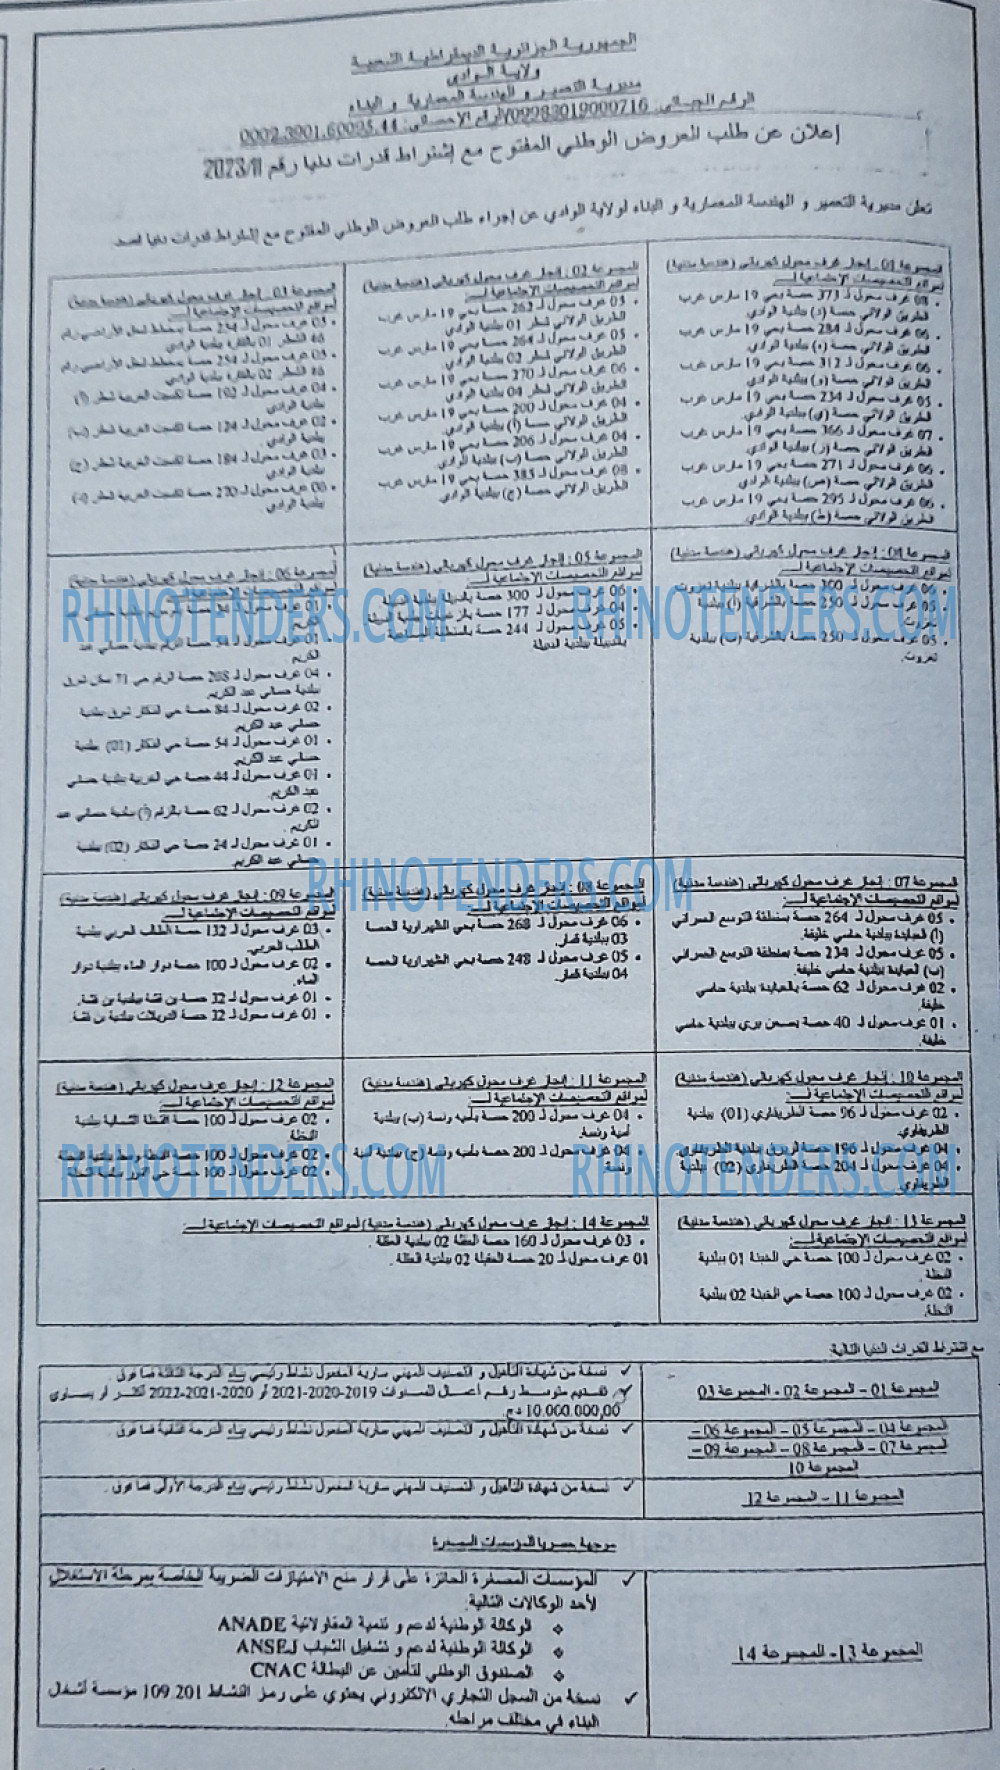 الجمهورية الجزائرية الديمقراطية الشعبية
ولاية الوادي
مديرية التعمير و الهندسة المعمارية و البناء
الرقم الجبائي: 099283019000716/ الرقم الإحصائي: 0002.3901.60095.44
إعلان عن طلب العروض الوطني المفتوح مع إشتراط قدرات دنيا رقم 2023/11
تعلن مديرية التعمير و الهندسة المعمارية و البناء لولاية الوادي عن إجراء طلب العروض الوطني المفتوح مع إشتراط قدرات دنيا لصد
المجموعة 01 : إنجاز غرف محول كهربائي (هندسة مدنية)
لمواقع التخصيصات الإجتماعية لـــ:
• 08 غرف محول لـ 373 حصة بحي 19 مارس غرب
الطريق الولائي حصة (د) ببلدية الوادي
• 06 غرف محول لـ 284 حصة بحي 19 مارس غرب
الطريق الولائي حصة (ه) ببلدية الوادي
• 06 غرف محول لـ 312 حصة بحي 19 مارس غرب
الطريق الولائي حصة (و) ببلدية الوادي
• 05 غرف محول لـ 234 حصة بحي 19 مارس غرب
الطريق الولائي حصة (ي) ببلدية الوادي.
• 07 غرف محول لـ 366 حصة بحي 19 مارس غرب
الطريق الولائي حصة (ز) ببلدية الوادي
• 06 غرف محول لـ 271 حصة بحي 19 مارس غرب
الطريق الولائي حصة (ص) ببلدية الوادي
• 06 غرف محول لـ 295 حصة بحي 19 مارس غرب
الطريق الولائي حصة (ط) ببلدية الوادي
المجموعة 02 : إنجاز غرف محول كهربائي (هندسة مدنية)
لمواقع التخصيصات الإجتماعية لـــ:
• 05 غرف محول لـ 262 حصة بحي 19 مارس غرب
الطريق الولائي شطر 01 بلدية الوادي
• 05 غرف محول لـ 264 حصة بحي 19 مارس غرب
الطريق الولائي شطر 02 بلدية الوادي
• 06 غرف محول لـ 270 حصة بحي 19 مارس غرب
الطريق الولائي شطر 04 بلدية الوادي
• 04 غرف محول لـ 200 حصة بحي 19 مارس غرب
الطريق الولائي حصة (أ) بلدية الوادي
• 04 غرف محول لـ 206 حصة بحي 19 مارس غرب
الطريق الولائي حصة (ب) ببلدية الوادي.
• 08 غرف محول لـ 385 حصة بحي 19 مارس غرب
الطريق الولائي حصة (ج) ببلدية الوادي
المجموعة 03 : إنجاز غرف محول كهربائي (هندسة مدنية)
لمواقع التخصيصات الإجتماعية لـــ:
• 05 غرف محول لـ 234 حصة بمخطط شغل الأراضي رقم
الشطر 01 بالشارة بلدية الوادي
• غرف محول لـ 234 حصة بمخطط شغل الأراضي رقم
الشطر 02 بالشارة بلدية الوادي
• 04 غرف محول لـ 192 حصة الغربية شطر (أ)
بلدية الوادي
• 02 غرف محول لـ 124 حصة الغربية شطر (ب)
بلدية الوادي.
• 03 غرف محول لـ 184 حصة الغربية شطر (ج)
بلدية الوادي
• غرف محول لـ 220 حصة الغربية شطر (د)
بلدية الوادي
المجموعة 04 : إنجاز غرف محول كهربائي (هندسة مدنية)
لمواقع التخصيصات الإجتماعية لـــ:
• 06 غرف محول لـ 300 حصة بالشرقية ببلدية تغزوت
• 05 غرف محول لـ 250 حصة بالشرقية (أ) ببلدية
تغزوت
• 05 غرف محول لـ 250 حصة بالشرقية (ب) ببلدية
تغزوت.
المجموعة 05 : إنجاز غرف محول كهربائي (هندسة مدنية)
لمواقع التخصيصات الإجتماعية لـــ:
• 06 غرف محول لـ 300 حصة بالدبيلة ببلدية الدبيلة
• 04 غرف محول لـ 177 حصة ببلدية الدبيلة
• 05 غرف محول لـ 244 حصة بالمنطقة السياحية
بالدبيلة ببلدية الدبيلة
المجموعة 06 : إنجاز غرف محول كهربائي (هندسة مدنية)
لمواقع التخصيصات الإجتماعية لـــ:
• 01 غرف محول لـ
الكريم
• 01 غرف محول لـ 54 حصة الرقم ببلدية حساني عبد
الكريم
• 04 غرف محول لـ 208 حصة الرقم حي 71 سكن شرق
بلدية حساني عبد الكريم
• 02 غرف محول لـ 84 حصة حي الفكار شرق بلدية
حساني عبد الكريم
• 01 غرف محول لـ 54 حصة حي الفكار (01) ببلدية
حساني عبد الكريم.
• 01 غرف محول لـ 44 حصة حي الغربية ببلدية حساني
عبد الكريم.
• 02 غرف محول لـ 62 حصة بالرقم (أ) ببلدية حساني عبد
الكريم .
• 01 غرف محول لـ 24 حصة حي الفكار (02) ببلدية
حساني عبد الكريم
المجموعة 07 : إنجاز غرف محول كهربائي (هندسة مدنية)
لمواقع التخصيصات الإجتماعية لـــ:
• 05 غرف محول لـ 264 حصة بمنطقة التوسع العمراني
(أ) العبايدة ببلدية حاسي خليفة.
• 05 غرف محول لـ 234 حصة بمنطقة التوسع العمراني
(ب) العبايدة ببلدية حاسي خليفة.
• 02 غرف محول لـ 62 حصة بالعبايدة ببلدية حاسي
خليفة.
• 01 غرف محول لـ 40 حصة بصحن بري ببلدية حاسي
خليفة.
المجموعة 08 : إنجاز غرف محول كهربائي (هندسة مدنية)
لمواقع التخصيصات الإجتماعية لـــ:
• 06 غرف محول لـ 268 حصة بحي الظهراوية الحصة
03 ببلدية قمار.
• 05 غرف محول لـ 248 حصة بحي الظهراوية الحصة
04 ببلدية قمار.
المجموعة 09 : إنجاز غرف محول كهربائي (هندسة مدنية)
لمواقع التخصيصات الإجتماعية لـــ:
• 03 غرف محول لـ 132 حصة الطالب العربي ببلدية
الطالب العربي.
• 02 غرف محول لـ 100 حصة دوار الماء ببلدية دوار
الماء.
• 01 غرف محول لـ 32 حصة بن قشة ببلدية بن قشة.
• 01 غرف محول لـ 32 حصة ببلدية بن قشة.
المجموعة 10 : إنجاز غرف محول كهربائي (هندسة مدنية)
لمواقع التخصيصات الإجتماعية لـــ:
• 02 غرف محول لـ 96 حصة الطريفاوي (01) ببلدية
الطريفاوي.
• 04 غرف محول لـ 196 حصة ببلدية الطريفاوي
• 04 غرف محول لـ 204 حصة الطريفاوي (02) ببلدية
الطريفاوي
المجموعة 11 : إنجاز غرف محول كهربائي (هندسة مدنية)
لمواقع التخصيصات الإجتماعية لـــ:
• 04 غرف محول لـ 200 حصة بأميه ونسة (ب) ببلدية
أميه ونسة.
• 04 غرف محول لـ 200 حصة بأميه ونسة (ج) ببلدية أميه
ونسة
المجموعة 12 : إنجاز غرف محول كهربائي (هندسة مدنية)
لمواقع التخصيصات الإجتماعية لـــ:
• 02 غرف محول لـ 100 حصة النخلة الشمالية ببلدية
النخلة
• 02 غرف محول لـ 100 حصة النخلة وسط ببلدية النخلة
• 02 غرف محول لـ 100 حصة حي ببلدية النخلة
المجموعة 13 : إنجاز غرف محول كهربائي (هندسة مدنية)
لمواقع التخصيصات الإجتماعية لـــ:
• 02 غرف محول لـ 100 حصة حي الخبنة 01 ببلدية
النخلة.
• 02 غرف محول لـ 100 حصة حي الخبنة 02 ببلدية
النخلة.
المجموعة 14 : إنجاز غرف محول كهربائي (هندسة مدنية) لمواقع التخصيصات الإجتماعية لـــ:
• 03 غرف محول لـ 160 حصة العقلة 02 ببلدية العقلة.
01 غرف محول لـ 20 حصة العقيلة 02 ببلدية العقلة .
مع اشتراط القدرات الدنيا التالية:
المجموعة 01 – المجموعة 02 - المجموعة 03
✓ نسخة من شهادة التأهيل و التصنيف المهني سارية المفعول نشاط رئيسي بناء الدرجة الثالثة فما فوق.
✓ تقديم متوسط رقم أعمال السنوات 2019-2020-2021 أو 2020-2021-2022 أكثر أو يساوي
10.000.000,00 دج.
المجموعة 04 – المجموعة 05 – المجموعة 06 –
المجموعة 07 – المجموعة 08 – المجموعة 09 –
المجموعة 10
✓ نسخة من شهادة التأهيل و التصنيف المهني سارية المفعول نشاط رئيسي بناء الدرجة الثانية فما فوق.
المجموعة 11 – المجموعة 12
✓ نسخة من شهادة التأهيل و التصنيف المهني سارية المفعول نشاط رئيسي بناء الدرجة الأولى فما فوق .
موجهة حصريا للمؤسسات المصغرة
المجموعة 13- المجموعة 14
✓ المؤسسات المصغرة الحائزة على قرار منح الامتيازات الضريبية الخاصة بمرحلة الاستغلال
لأحد الوكالات التالية:
❖ الوكالة الوطنية لدعم و تنمية المقاولاتية ANADE
❖ الوكالة الوطنية لدعم و تشغيل الشباب ANSEJ
❖ الصندوق الوطني لتأمين عن البطالة CNAC
✓ نسخة من السجل التجاري الالكتروني يحتوي على رمز النشاط 109.201 مؤسسة أشغال
البناء في مختلف مراحله.
RHINOTENDERS.COM
RHINOTENDERS.COM
RHINOTENDERS.COM
RHINOTENDERS.COM
RHINOTENDERS.COM